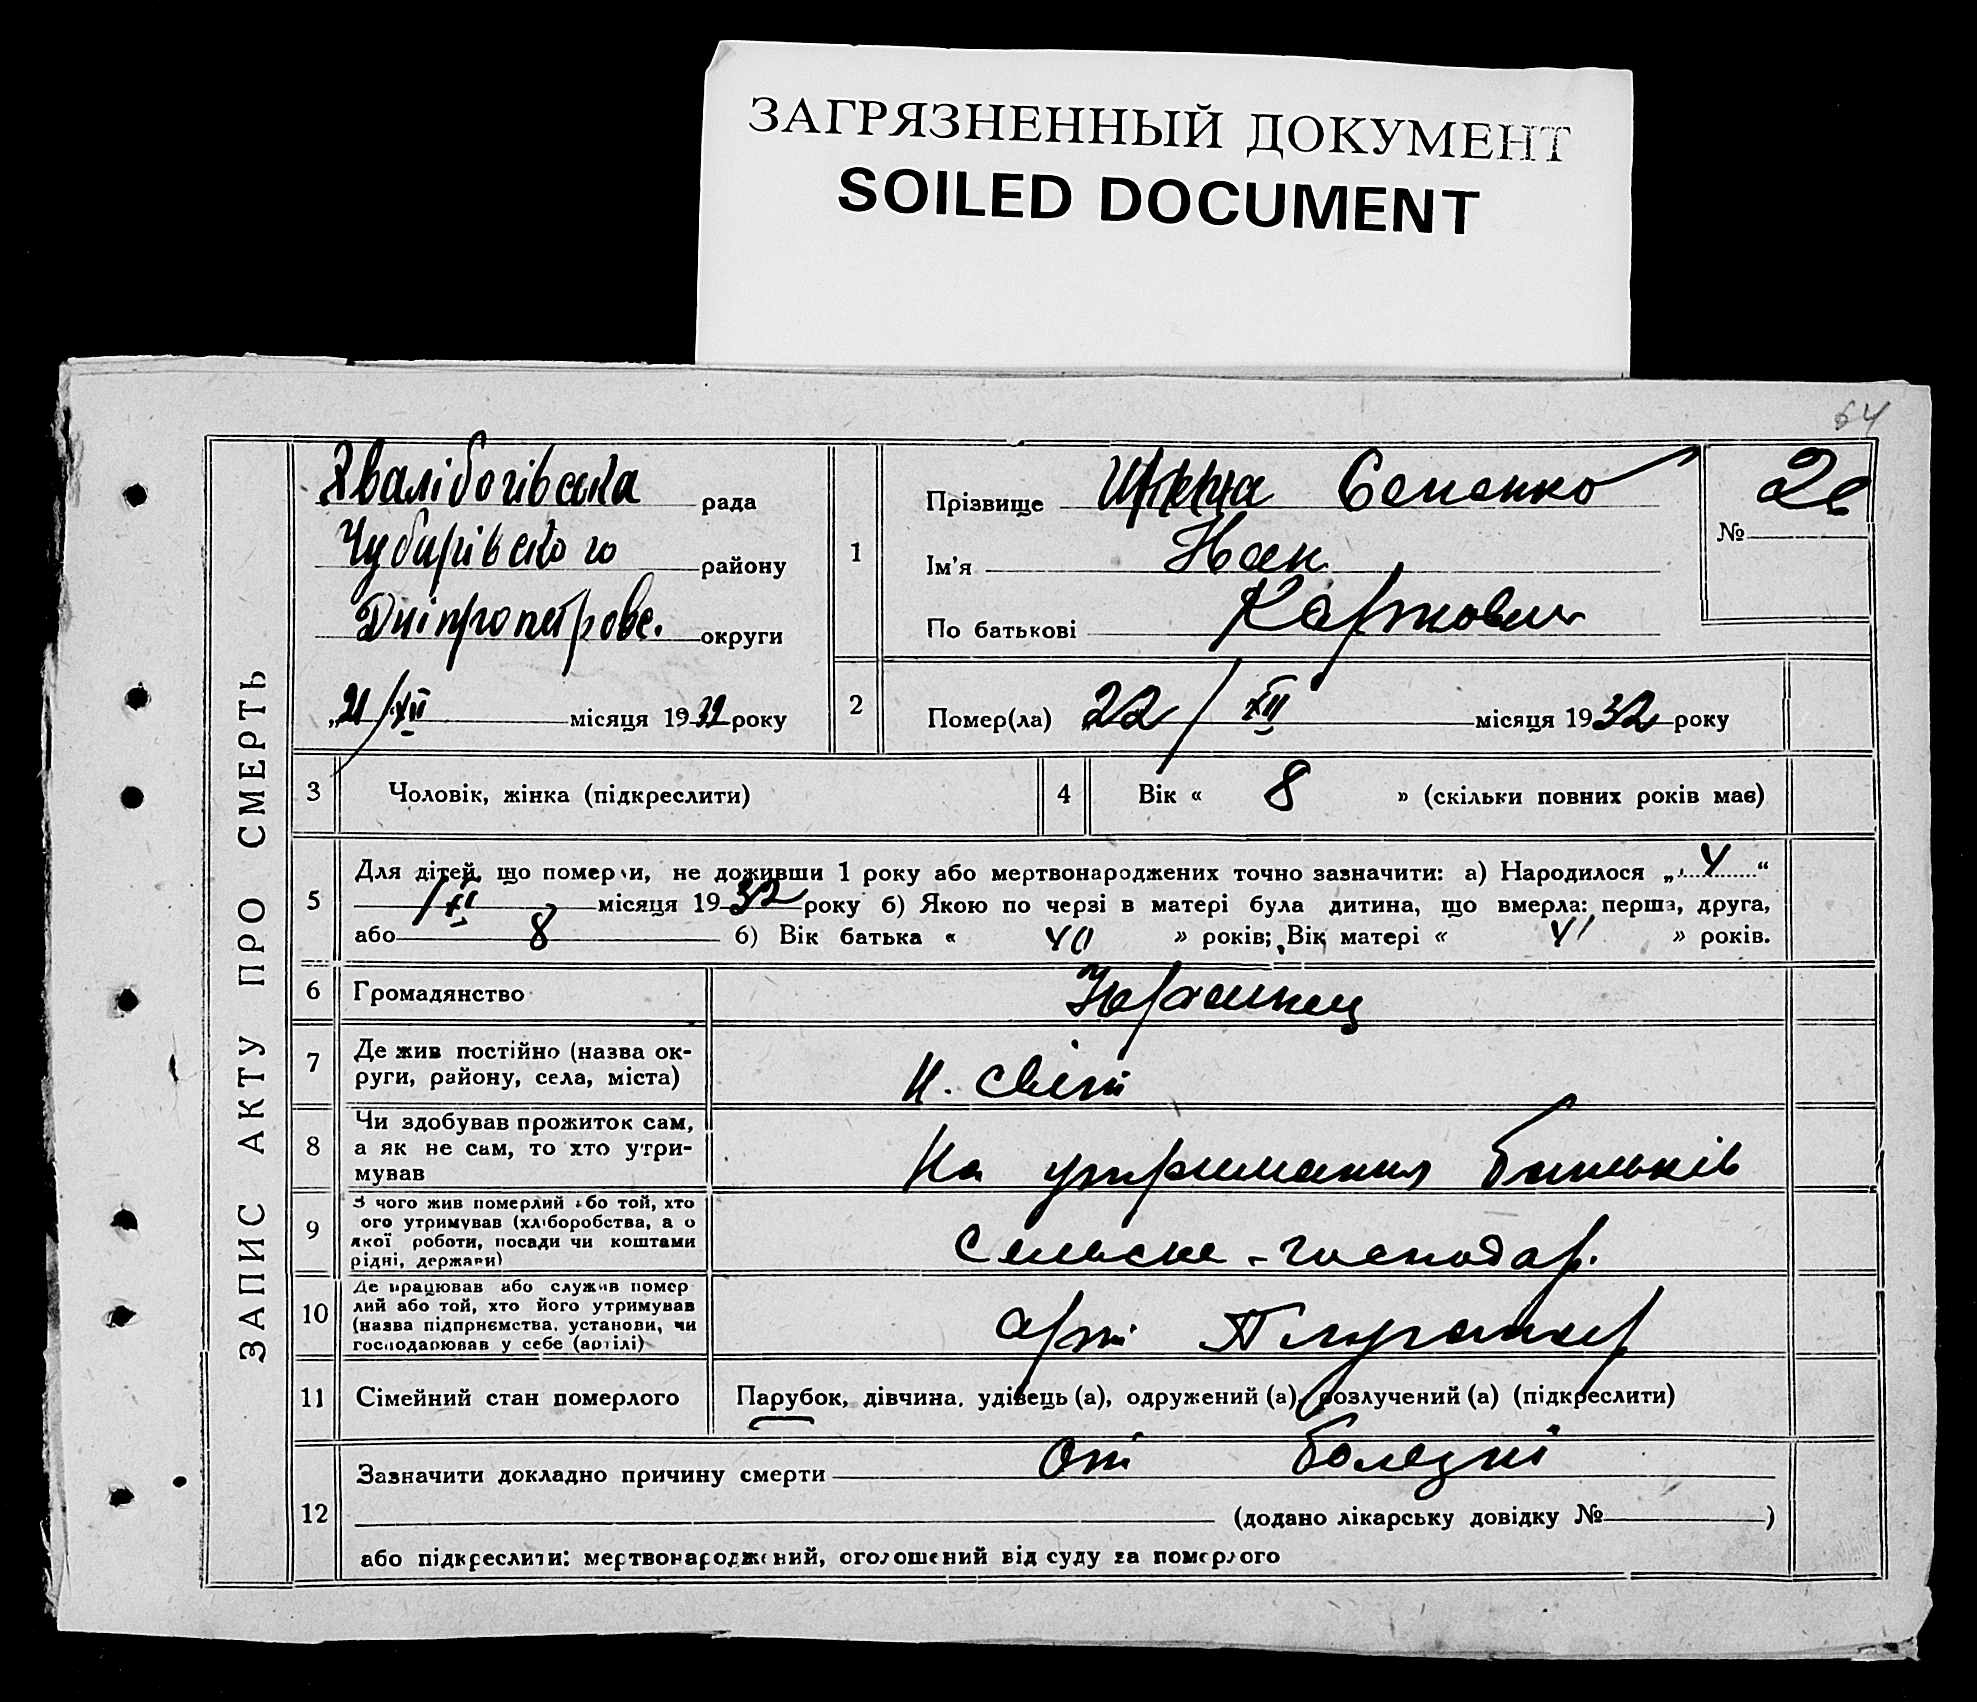 ЗАГРЯЗНЕННЫЙ ДОКУМЕНТ
SOILED DOCUMENT
64
ЗАПИС АКТУ ПРО СМЕРТЬ
Хвалібогівська рада
Чубарівського району
Дніпропетровс. округи
„21/XII місяця 1932 року
1
Прізвище Семенко
Ім'я Іван
По батькові Карпович
№ 26
2
Помер(ла) 22/XII місяця 1932 року
3
Чоловік, жінка (підкреслити)
4
Вік « 8 » (скільки повних років має)
5
Для дітей, що померли, не доживши 1 року або мертвонароджених точно зазначити: а) Народилося „ 4 “
/XII місяця 1932 року б) Якою по черзі в матері була дитина, що вмерла: перша, друга,
або 8 б) Вік батька « 40 » років; Вік матері « 41 » років.
6
Громадянство
7
Де жив постійно (назва ок-
руги, району, села, міста)
Н. Світ
8
Чи здобував прожиток сам,
а як не сам, то хто утри-
мував
На утримання батьків
9
З чого жив померлий або той, хто
ого утримував (хліборобства, а о
якої роботи, посади чи коштами
рідні, держави)
Сельске - господар.
10
Де працював або служив помер
лий або той, хто його утримував
(назва підприємства, установи, чи
господарював у себе (артілі)
арт
11
Сімейний стан померлого
Парубок, дівчина, удівець (а), одружений (а), розлучений (а) (підкреслити)
12
Зазначити докладно причину смерти От болезні
(додано лікарську довідку № )
або підкреслити: мертвонароджений, оголошений від суду за померлого